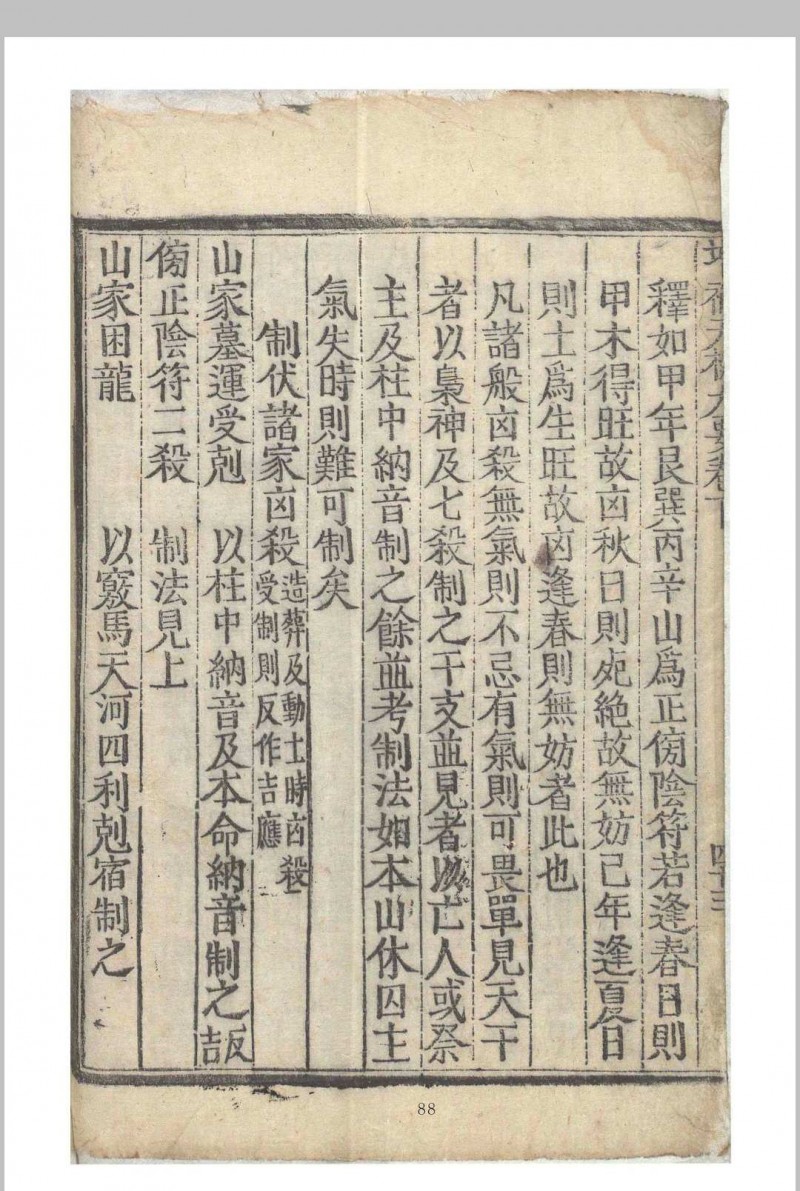 釋如甲年艮巽丙辛山爲正傍陰符若逢春日則
甲木得旺故凶秋日則死絶故無妨己年逢夏日
則土爲生旺故凶逢春則無妨者此也
凡諸般凶殺無氣則不忌有氣則可畏單見天干
者以梟神及七殺制之干支並見者以亡人或祭
主及柱中納音制之餘並考制法如本山休囚主
氣失時則難可制矣
制伏諸家凶殺造葬及動土時凶殺
受制則反作吉應
山家墓運受剋 以柱中納音及本命納音制之反吉
傍正陰符二殺 制法見上
山家困龍 以竅馬天河四利剋宿制之
88